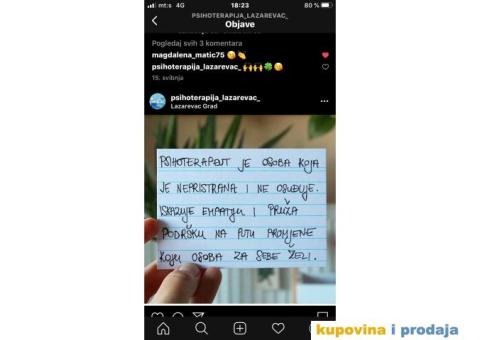 mt:s 4G 18:23 80 %
PSIHOTERAPIJA_LAZAREVAC_
Objave
Pogledaj svih 3 komentara
magdalena_matic75
psihoterapija_lazarevac_
15. svibnja
psihoterapija_lazarevac_
Lazarevac Grad
PSIHOTERAPEUT JE OSOBA KOJA
JE NEPRISTRANA I NE OSUĐUJE.
ISKAZUJE EMPATIJU I PRUŽA
PODRŠKU NA PUTU PROMJENE
KOJU OSOBA ZA SEBE ŽELI.
kupovina i prodaja